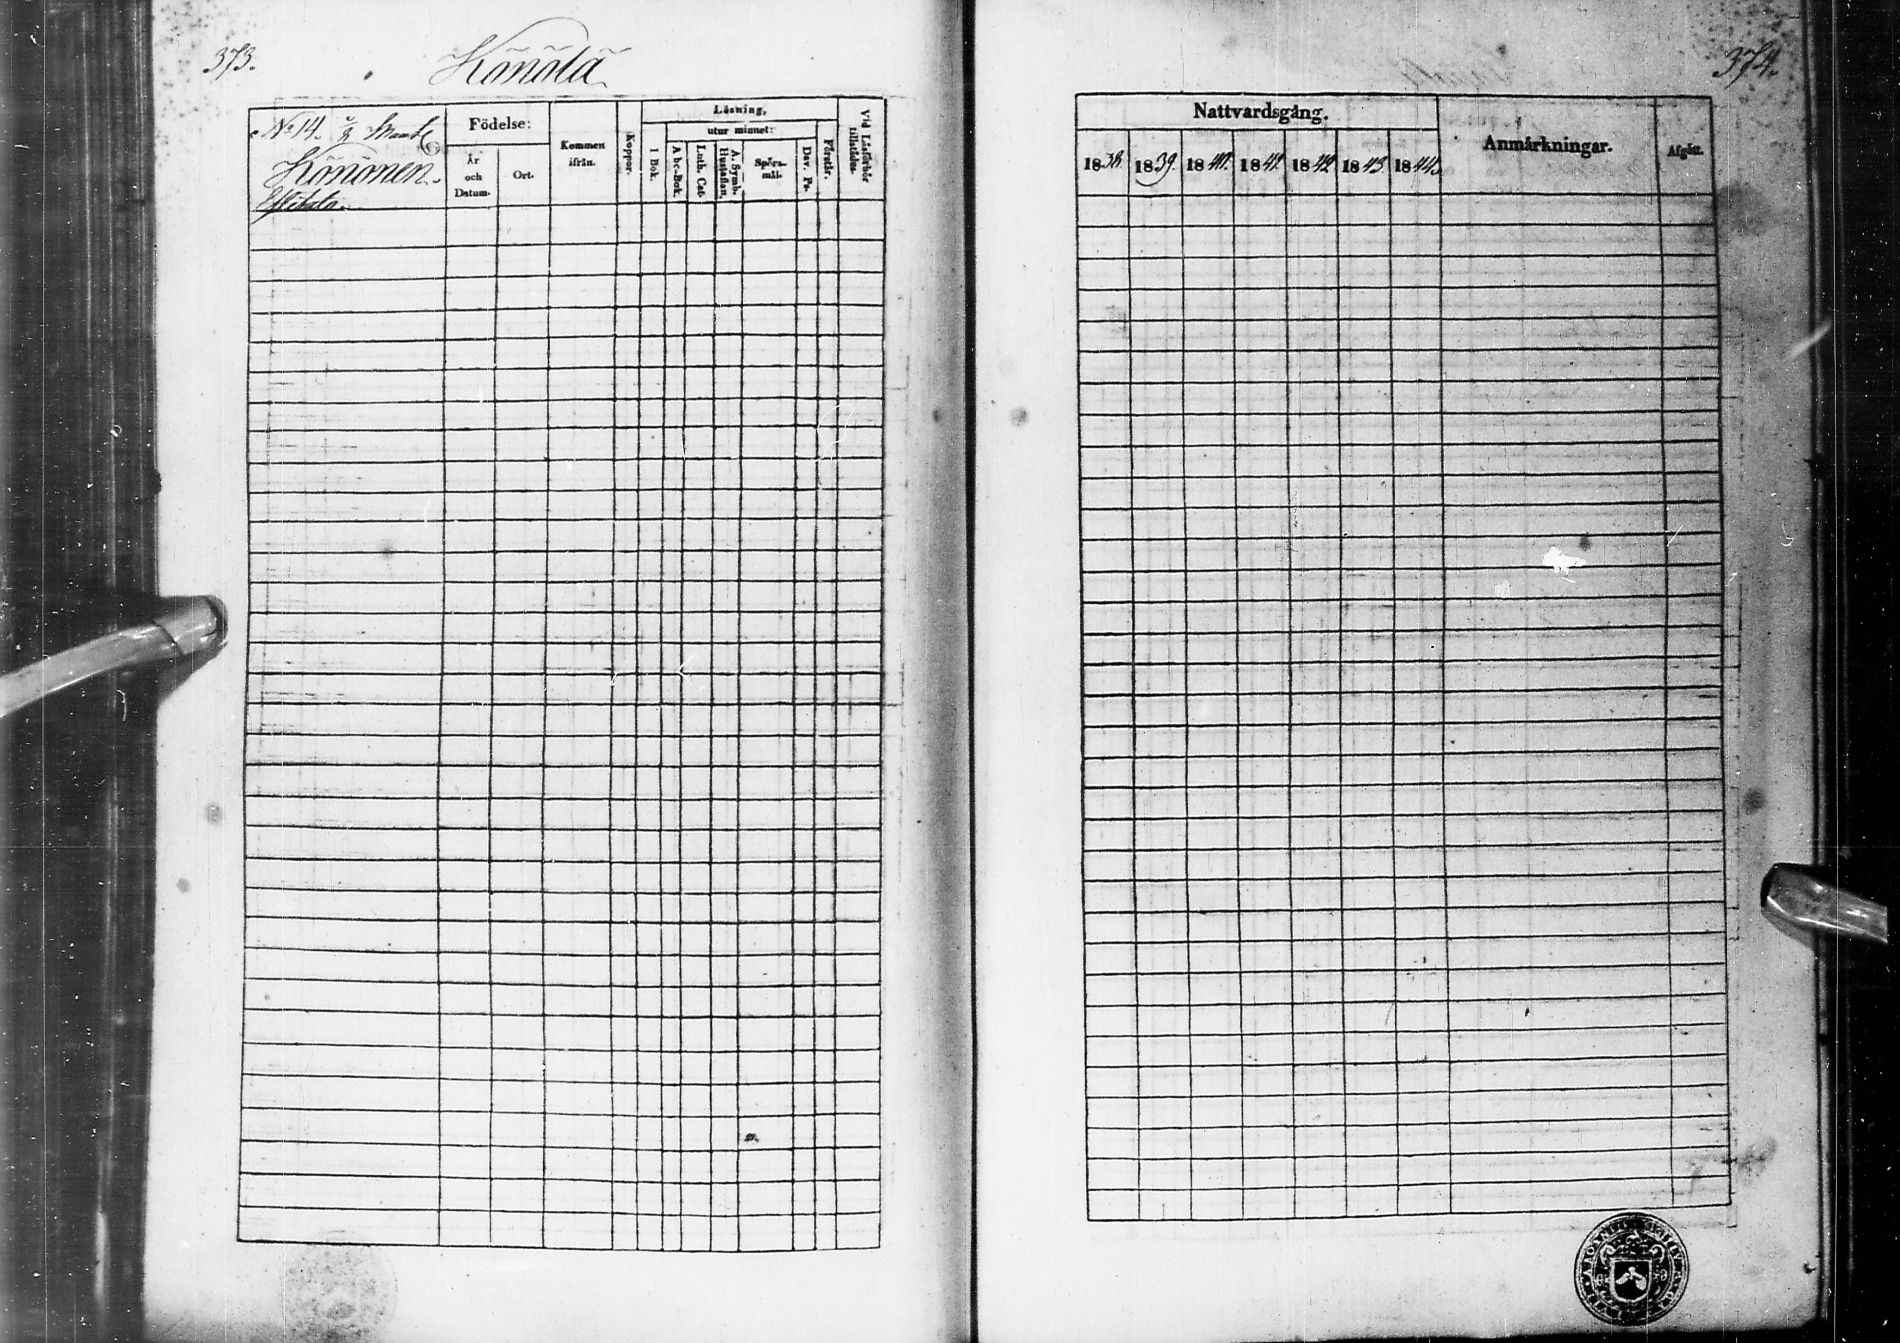 373.
Könölä
No 14.
Könönen.
Födelse:
År och Datum.
Ort.
Kommen ifrån.
Koppor.
Läsning,
utur minnet:
I Bok.
A bc-Bok.
Luth. Cat.
A. Symb. Hustaflan.
Spörsmål.
Dav. Ps.
Förstår.
Vid Läsförhör tillstädes.
374.
Nattvardsgång.
1838. 1839. 1840. 1841. 1842. 1843. 1844.
Anmärkningar.
Afgått.